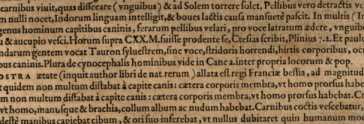 carnibus viuit, quas diſſecare (vnguibus) & ad Solem torrere ſolet. Pellibus vero detractis v
m nulli nocet, Indorum linguam intelligit, & boues lactis cauſa manſuetè paſcit. In multis
genus hominum capitibus caninis, ferarum pellibus velari, pro voce latratum edere, vnguib
& aucupio veſci. Horum ſupra CXX.M. fuiſſe prodente ſe, Cteſias ſcribit, Plinius 7.2. Et pauló
ndarum gentem vocat Tauron ſylueſtrem, ſine voce, ſtridoris horrendi, hirtis corporibus, oc
bus caninis. Plura de cynocephalis hominibus vide in Cane a. inter propria locorum & pop.
OSTRA ætate (inquit author libri de nat. rerum) allata eſt regi Franciæ beſtia, ad magnitu
t quidem non multum diſtabat à capite canis: cætera corporis membra, vt homo prorſus hab
m non multum diſtabat à capite canis: cætera corporis membra, vt homo prorſus habebat. Cr
vt homo, manus que & brachia, collum album ac nudum habebat. Carnibus coctis veſcebatur,
deſtè manibus capiebat cibum, & ori ſuo inferebat, vt nullus dubitaret quin humanum